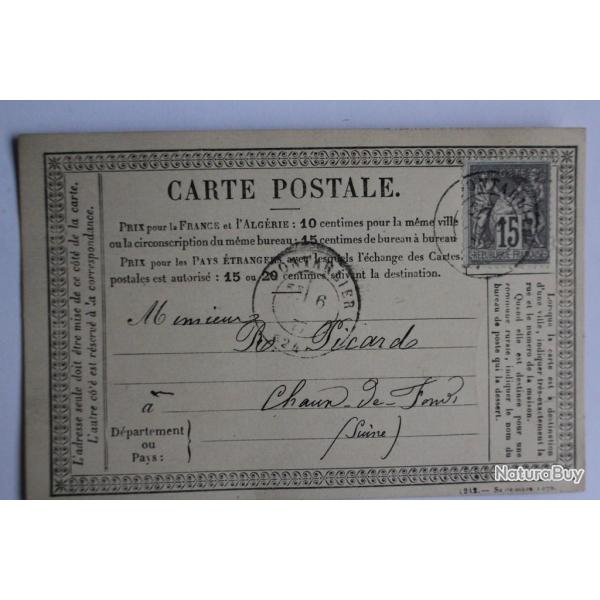 CARTE POSTALE.
PRIX pour la FRANCE et l'ALGÉRIE : 10 centimes pour la même ville
ou la circonscription du même bureau ; 15 centimes de bureau à bureau
PRIX pour les PAYS ÉTRANGERS avec lesquels l'échange des Cartes
postales est autorisé : 15 ou 20 centimes suivant la destination.
POSTE
15
REPUBLIQUE FRANCAISE
PONTARLIER
6
Monsieur
R. Picard
à
Chaux-de-Fonds
(Suisse)
Département
ou
Pays :
L'adresse seule doit être mise de ce côté de la carte.
L'autre côté est réservé à la correspondance.
Lorsque la carte est à destination
d'une ville, indiquer très-exactement la
rue et le numéro de la maison.
Quand elle est destinée pour une
commune rurale, indiquer le nom du
bureau de poste qui la dessert.
NaturaBuy